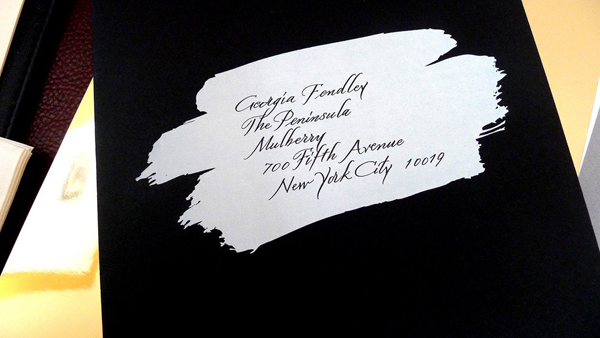 Georgia Fendley
The Peninsula
Mulberry
700 Fifth Avenue
New York City 10019